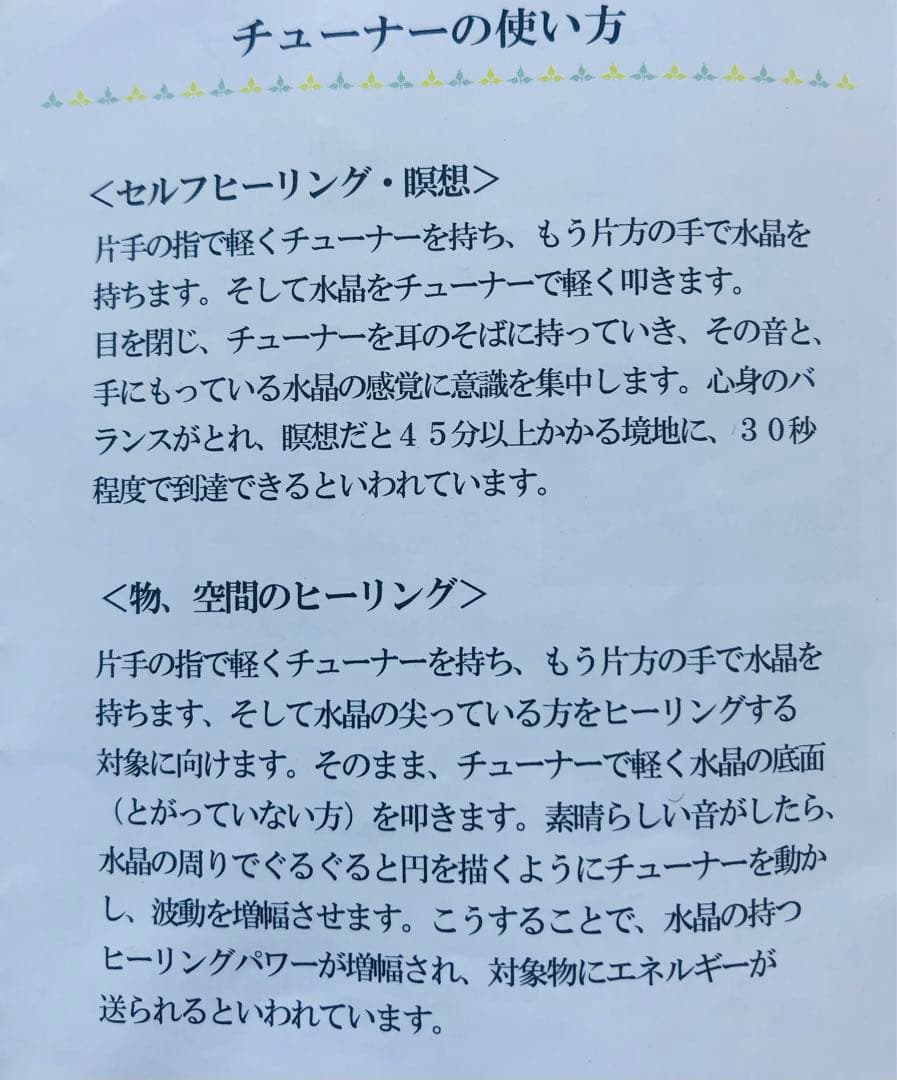 チューナーの使い方
＜セルフヒーリング・瞑想＞
片手の指で軽くチューナーを持ち、もう片方の手で水晶を
持ちます。そして水晶をチューナーで軽く叩きます。
目を閉じ、チューナーを耳のそばに持っていき、その音と、
手にもっている水晶の感覚に意識を集中します。心身のバ
ランスがとれ、瞑想だと４５分以上かかる境地に、３０秒
程度で到達できるといわれています。
＜物、空間のヒーリング＞
片手の指で軽くチューナーを持ち、もう片方の手で水晶を
持ちます、そして水晶の尖っている方をヒーリングする
対象に向けます。そのまま、チューナーで軽く水晶の底面
（とがっていない方）を叩きます。素晴らしい音がしたら、
水晶の周りでぐるぐると円を描くようにチューナーを動か
し、波動を増幅させます。こうすることで、水晶の持つ
ヒーリングパワーが増幅され、対象物にエネルギーが
送られるといわれています。